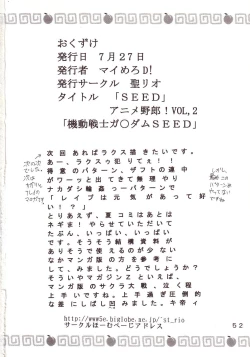 おくずけ
発行日　７月２７日
発行者　マイめろD!
発行サークル　聖リオ
タイトル　「ＳＥＥＤ」
アニメ野郎！VOL,２
「機動戦士ガ〇ダムＳＥＥＤ」
次回あればラクス描きたいです。
あー、ラクスゥ犯りてぇ！！
得意のパターン、ザフトの連中
がワーっと出てきて無理やり
ナカダシ輪姦っーパターンで
「レイプは元気があって好
い！？」
とりあえず、夏コミはあとは
ネギま！やらせていただいて
たぶん、いっぱい、いっぱい
です。そうそう結構資料が
ありそうで使えるのが少ない
なかマンガ版の方を参考に
して、みました。どうでしょうか？
そういやマガジンＺといえば
マンガ版のサクラ大戦、泣く程
上手いですね。上手過ぎ圧倒的
http://www5e.biglobe.ne.jp/~st_rio
サークルほーむぺーじアドレス
５２